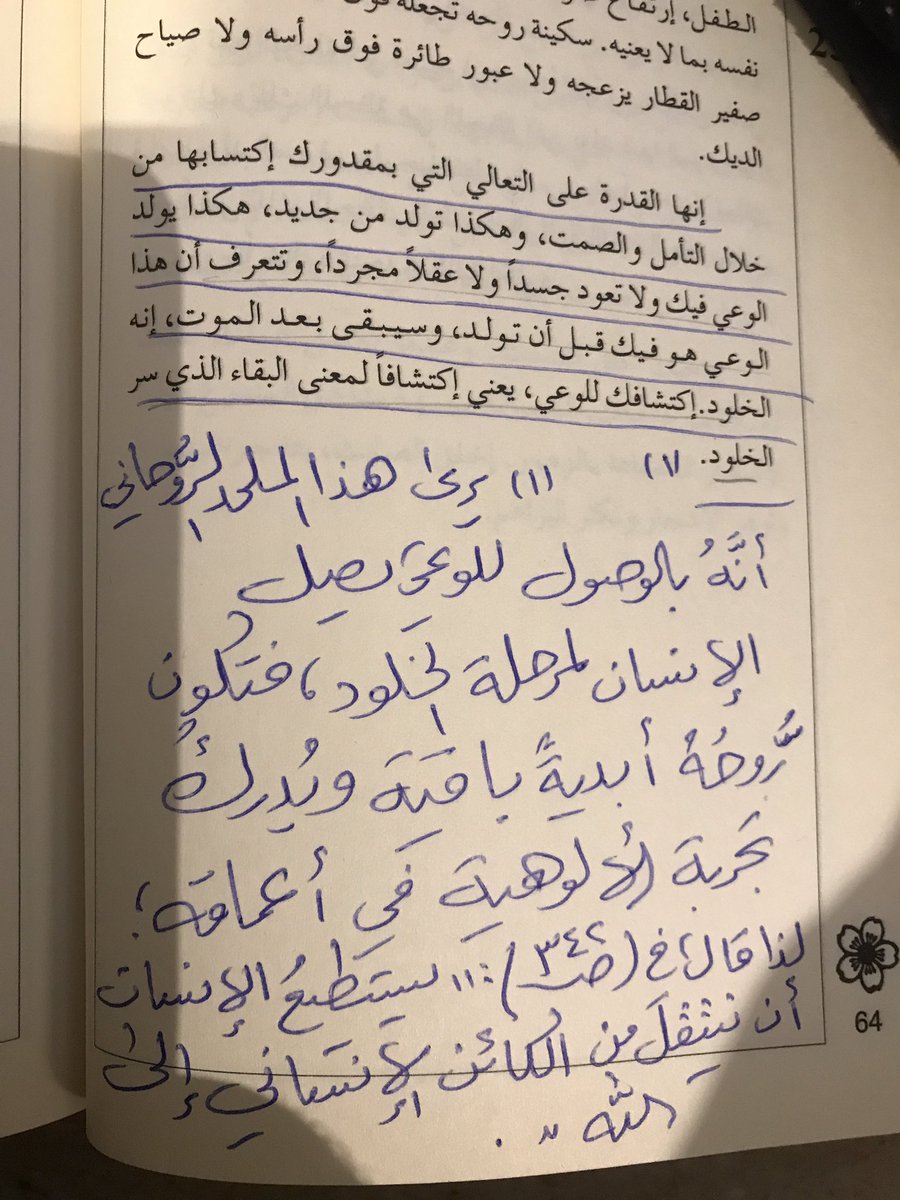 الطفل، إرتفاع
نفسه بما لا يعنيه. سكينة روحه تجعله فوق
صفير القطار يزعجه ولا عبور طائرة فوق رأسه ولا صياح
الديك.
إنها القدرة على التعالي التي بمقدورك إكتسابها من
خلال التأمل والصمت، وهكذا تولد من جديد، هكذا يولد
الوعي فيك ولا تعود جسداً ولا عقلاً مجرداً، وتتعرف أن هذا
الوعي هو فيك قبل أن تولد، وسيبقى بعد الموت، إنه
الخلود.إكتشافك للوعي، يعني إكتشافاً لمعنى البقاء الذي سر
الخلود. (١)
(١) يرى هذا الملحد الرُّوحاني
أنَّهُ بالوصول للوعي يصل
الإنسان لمرحلة الخلود، فتكون
رُّوحُهُ أبديةً باقية ويُدركُ
تجربة الألوهية في أعماقه؛
لذا قال في (ص٣٤٢): "يستطيعُ الإنسان
أن ينتقل من الكائن الإنساني إلى
الله".
64